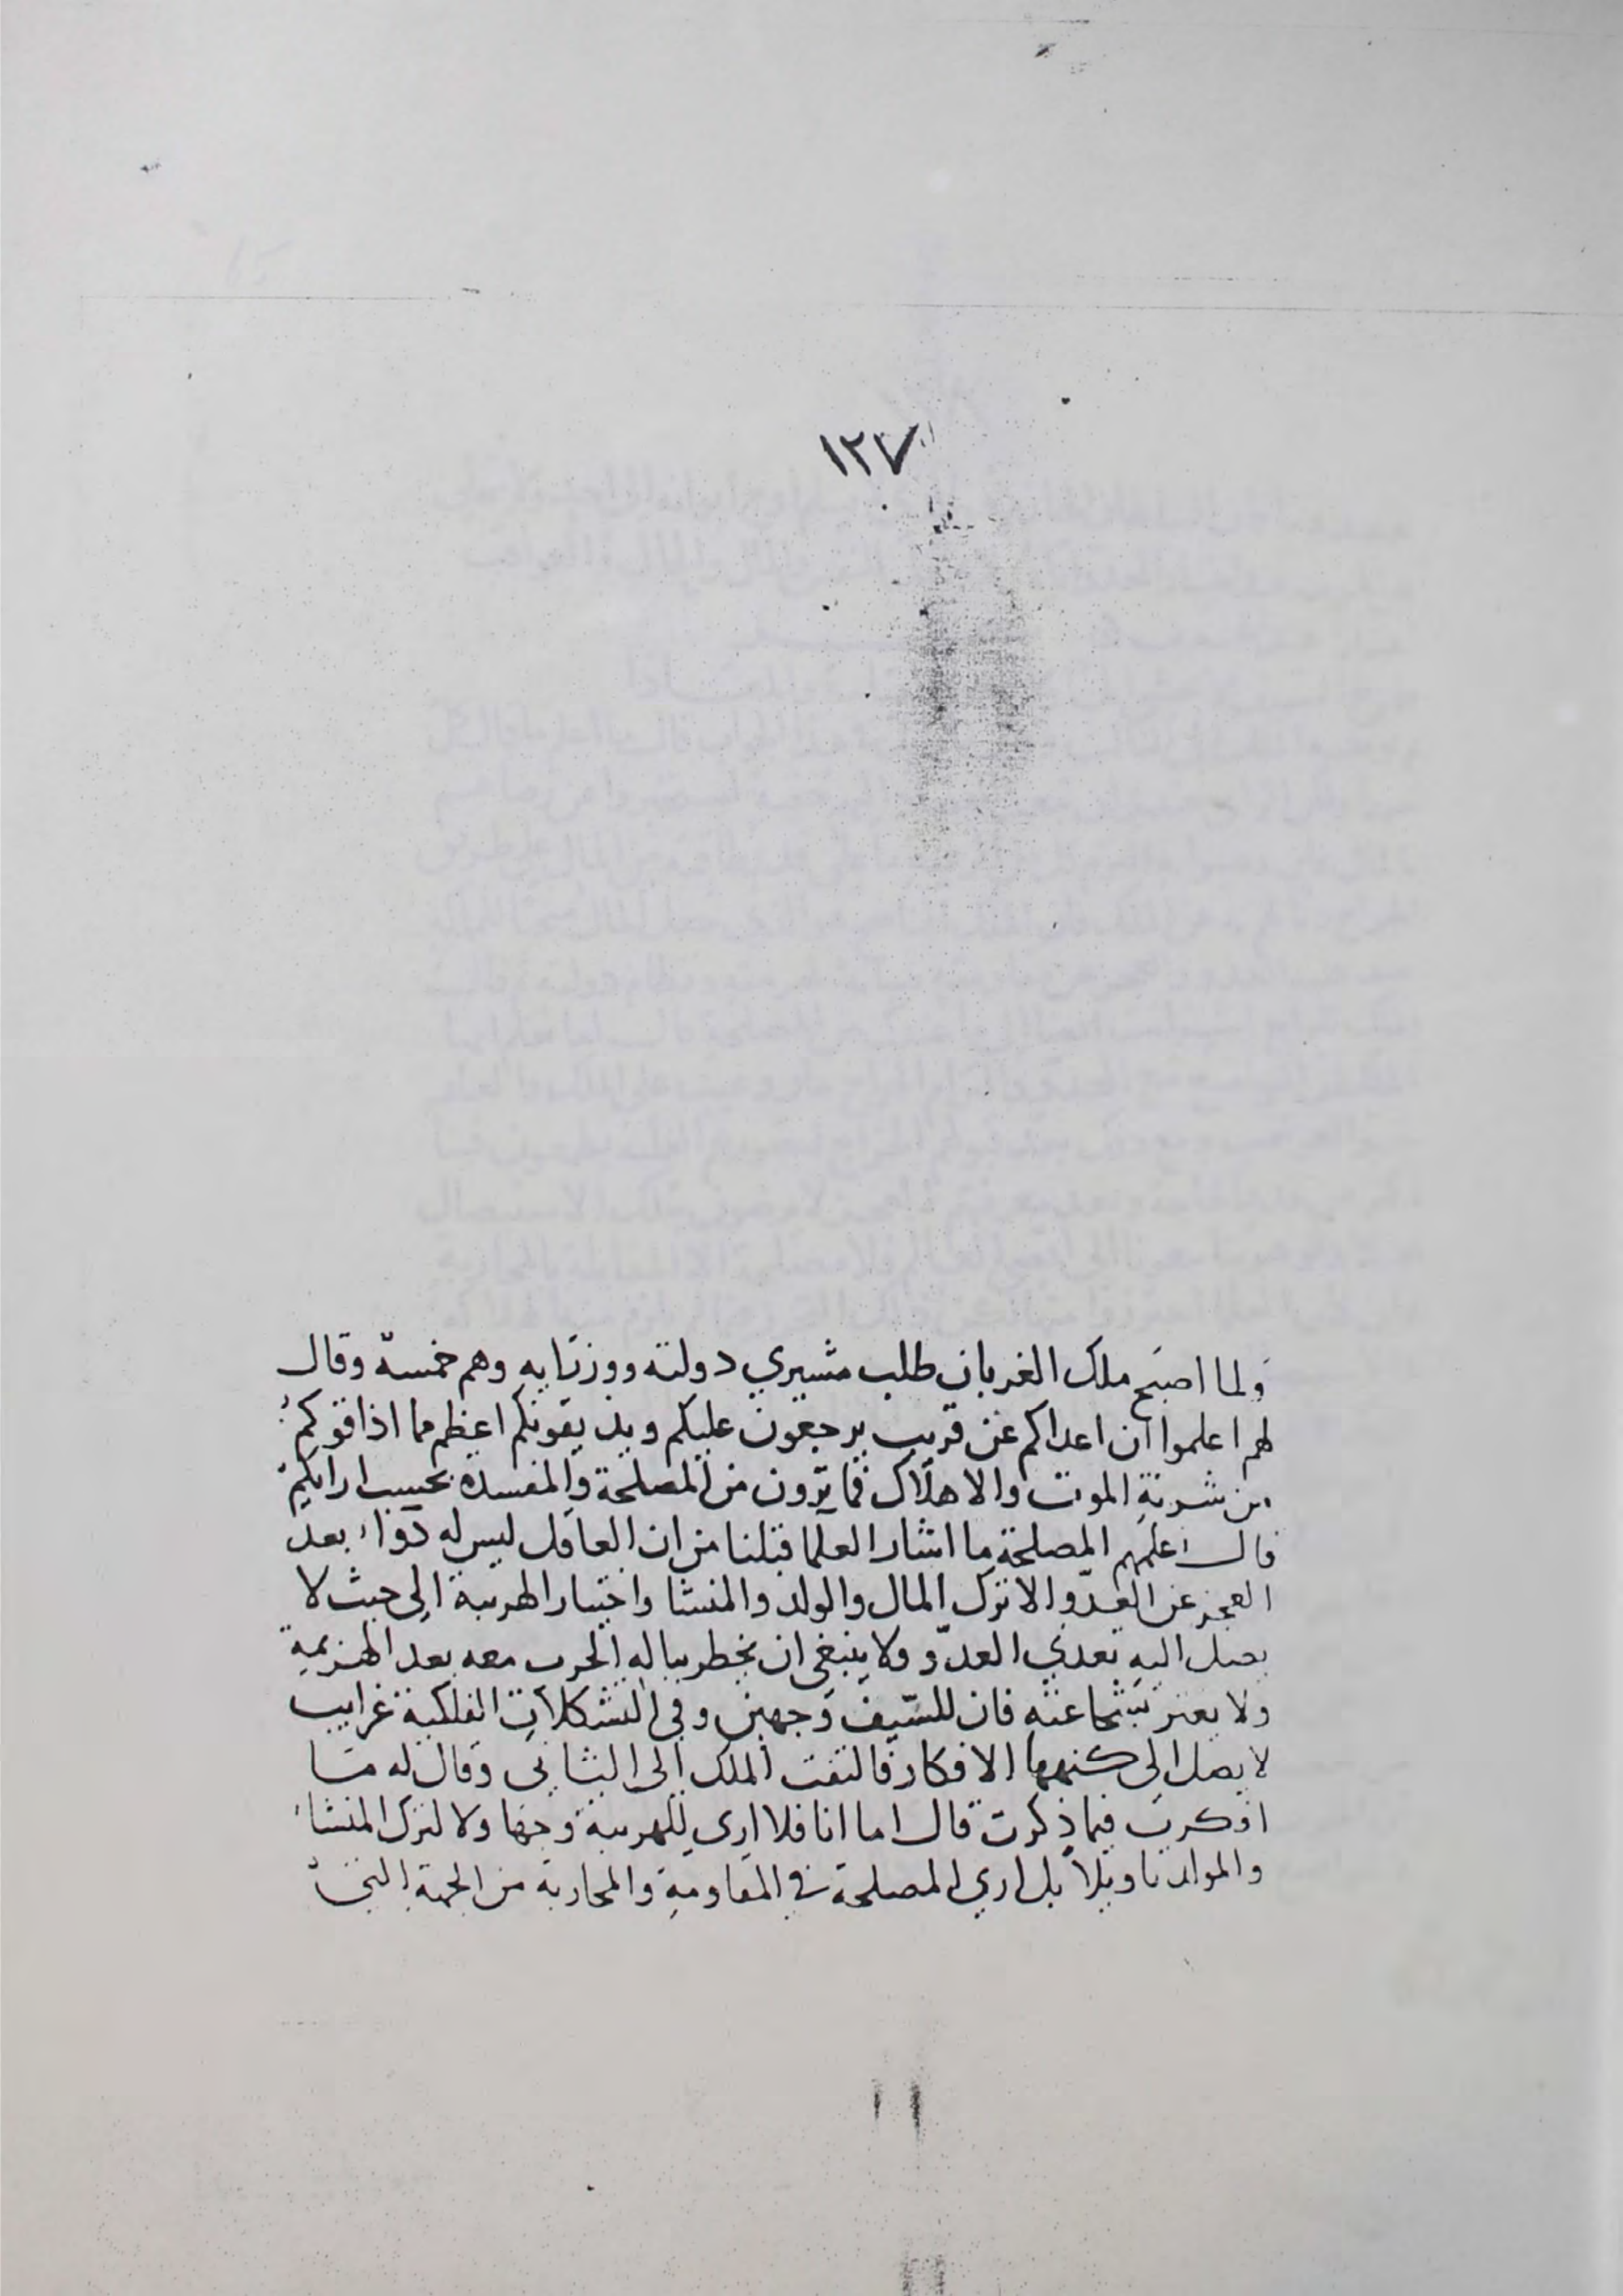 ١٢٧
ولما اصبح ملك الغربان طلب مشيري دولته ووزرايه وهم خمسة وقال
لهم اعلموا ان اعداكم عن قريب يرجعون عليكم ويذيقونكم اعظم مما اذاقوكم
من شربة الموت والاهلاك فما ترون من المصلحة والمفسدة بحسب ارايكم
قال اعلمهم المصلحة ما اشار العلما قبلنا من ان العاقل ليس له دواء بعد
العجز عن العدو الا ترك المال والولد والمنشا واختيار الهريبة الى حيث لا
يصل اليه تعدي العدو ولا ينبغي ان يخطر بباله الحرب معه بعد الهزيمة
ولا يغتر بشجاعته فان للسيف وجهين وفي التشكلات الفلكية غرايب
لا يصل الى كنهها الافكار فالتفت الملك الى الثاني وقال له ما
افكرت فيما ذكرت قال اما انا فلا ارى للهريبة وجها ولا لترك المنشاء
والموالد تاويلا بل ارى المصلحة في المقاومة والمحاربة من الجهة التي